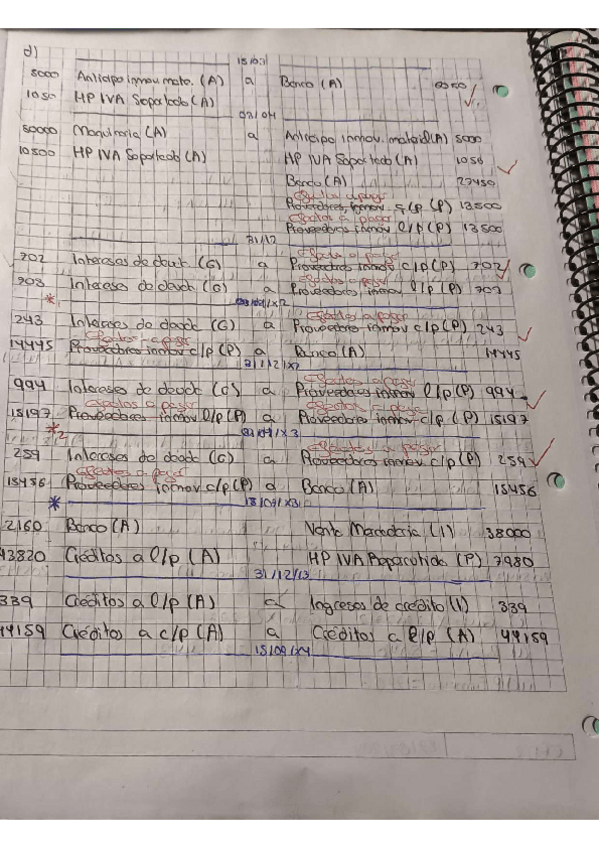 d)
15/01
5000 Anticipo inmov. mate. (A) a Banco (A) 6050
1050 HP IVA Soportado (A)
03/04
50000 Maquinaria (A) a Anticipo inmov. material (A) 5000
10500 HP IVA Soportado (A) HP IVA Soportado (A) 1050
Banco (A) 27450
Efectos a pagar
Proveedores inmov. c/p (P) 13500
Efectos a pagar
Proveedores inmov l/p (P) 13500
31/12
Efectos a pagar
702 Intereses de deud. (G) a Proveedores inmov c/p (P) 702
Efectos a pagar
703 Intereses de deuda (G) a Proveedores inmov l/p (P) 703
*1 03/04/x2
Efectos a pagar
243 Intereses de deuda (G) a Proveedores inmov c/p (P) 243
Efectos a pagar
14445 Proveedores inmov c/p (P) a Banco (A) 14445
31/12/x2
Efectos a pagar
994 Intereses de deuda (G) a Proveedores inmov l/p (P) 994
Efectos a pagar Efectos a pagar
15197 Proveedores inmov l/p (P) a Proveedores inmov c/p (P) 15197
*2 03/04/x3
Efectos a pagar
259 Intereses de deuda (G) a Proveedores inmov c/p (P) 259
Efectos a pagar
15456 Proveedores inmov c/p (P) a Banco (A) 15456
* 15/09/x3
2160 Banco (A) Venta Mercadería (I) 38000
43820 Créditos a l/p (A) HP IVA Repercutido (P) 7980
31/12/13
339 Créditos a l/p (A) a Ingresos de crédito (I) 339
44159 Créditos a c/p (A) a Créditos a l/p (A) 44159
15/09/x4